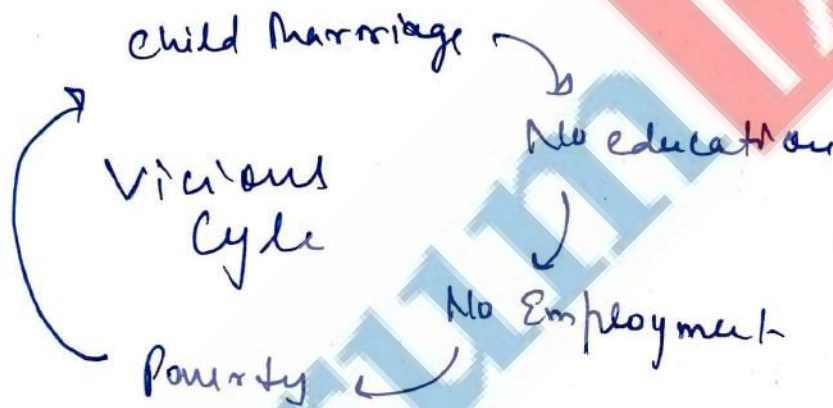 Child Marriage
No education
Vicious
Cycle
No Employment
Poverty